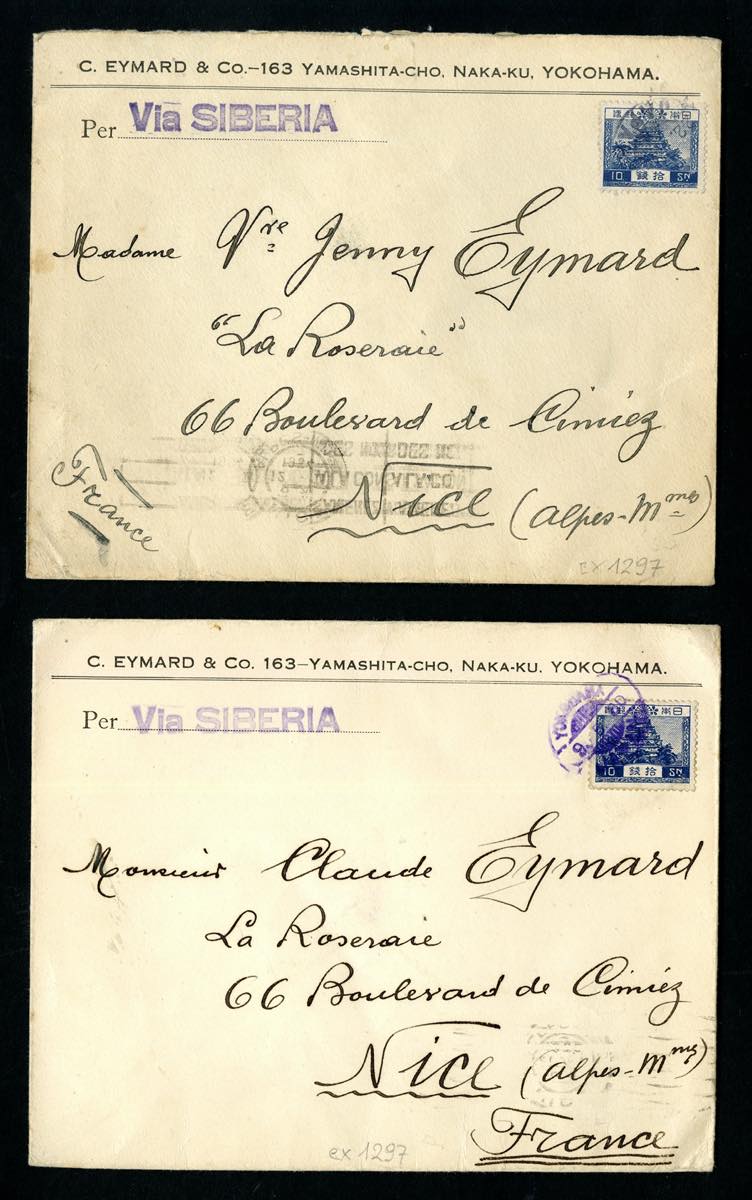 C. EYMARD & Co.–163 YAMASHITA-CHO, NAKA-KU, YOKOHAMA.
Per Via SIBERIA
10 拾錢 Sn
Madame Vre Jenny Eymard
"La Roseraie"
66 Boulevard de Cimiéz
Nice (Alpes-Mmes)
France
ex 1297
C. EYMARD & Co. 163–YAMASHITA-CHO, NAKA-KU. YOKOHAMA.
Per Via SIBERIA
YOKOHAMA
10 拾錢 Sn
Monsieur Claude Eymard
La Roseraie
66 Boulevard de Cimiéz
Nice (Alpes-Mmes)
France
ex 1297